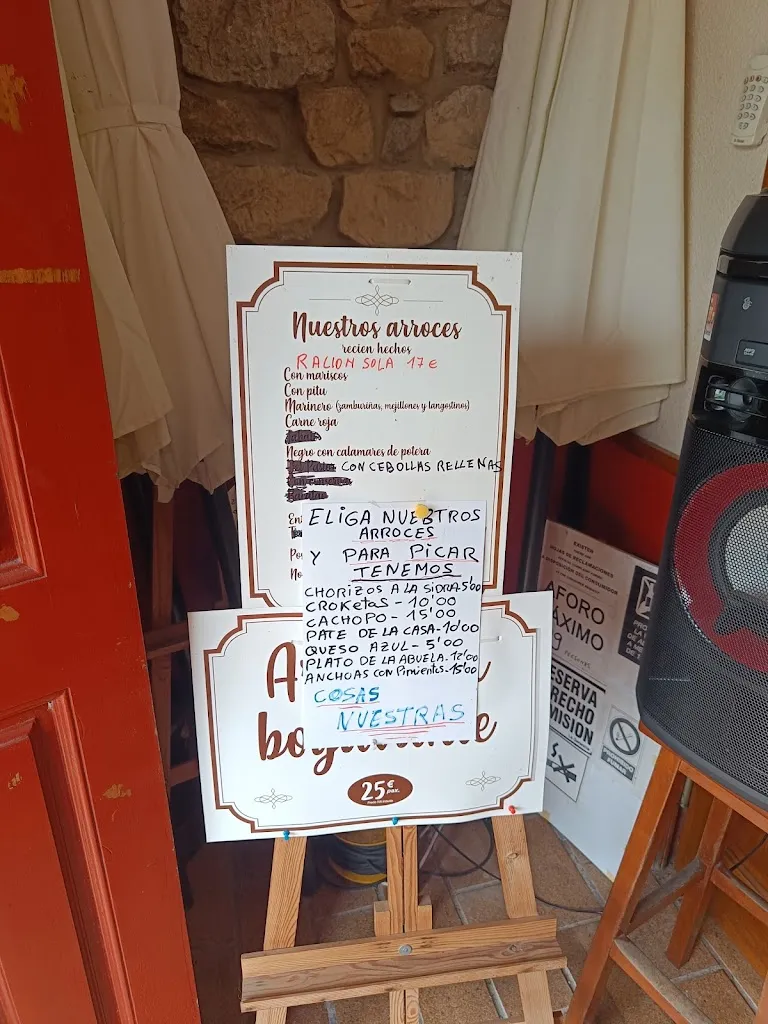 Nuestros arroces
recien hechos
RACION SOLA 17 €
Con mariscos
Con pitu
Marinero (zamburiñas, mejillones y langostinos)
Carne roja
Negro con calamares de potera
CON CEBOLLAS RELLENAS
ELIGA NUESTROS
ARROCES
Y PARA PICAR
TENEMOS
CHORIZOS A LA SIDRA 5'00
CROKETAS - 10'00
CACHOPO - 15'00
PATE DE LA CASA - 10'00
QUESO AZUL - 5'00
PLATO DE LA ABUELA - 12'00
ANCHOAS CON PIMIENTOS - 15'00
COSAS
NUESTRAS
25€
EXISTEN
HOJAS DE RECLAMACIONES
A DISPOSICIÓN DEL CONSUMIDOR
AFORO
MÁXIMO
RESERVA
DERECHO